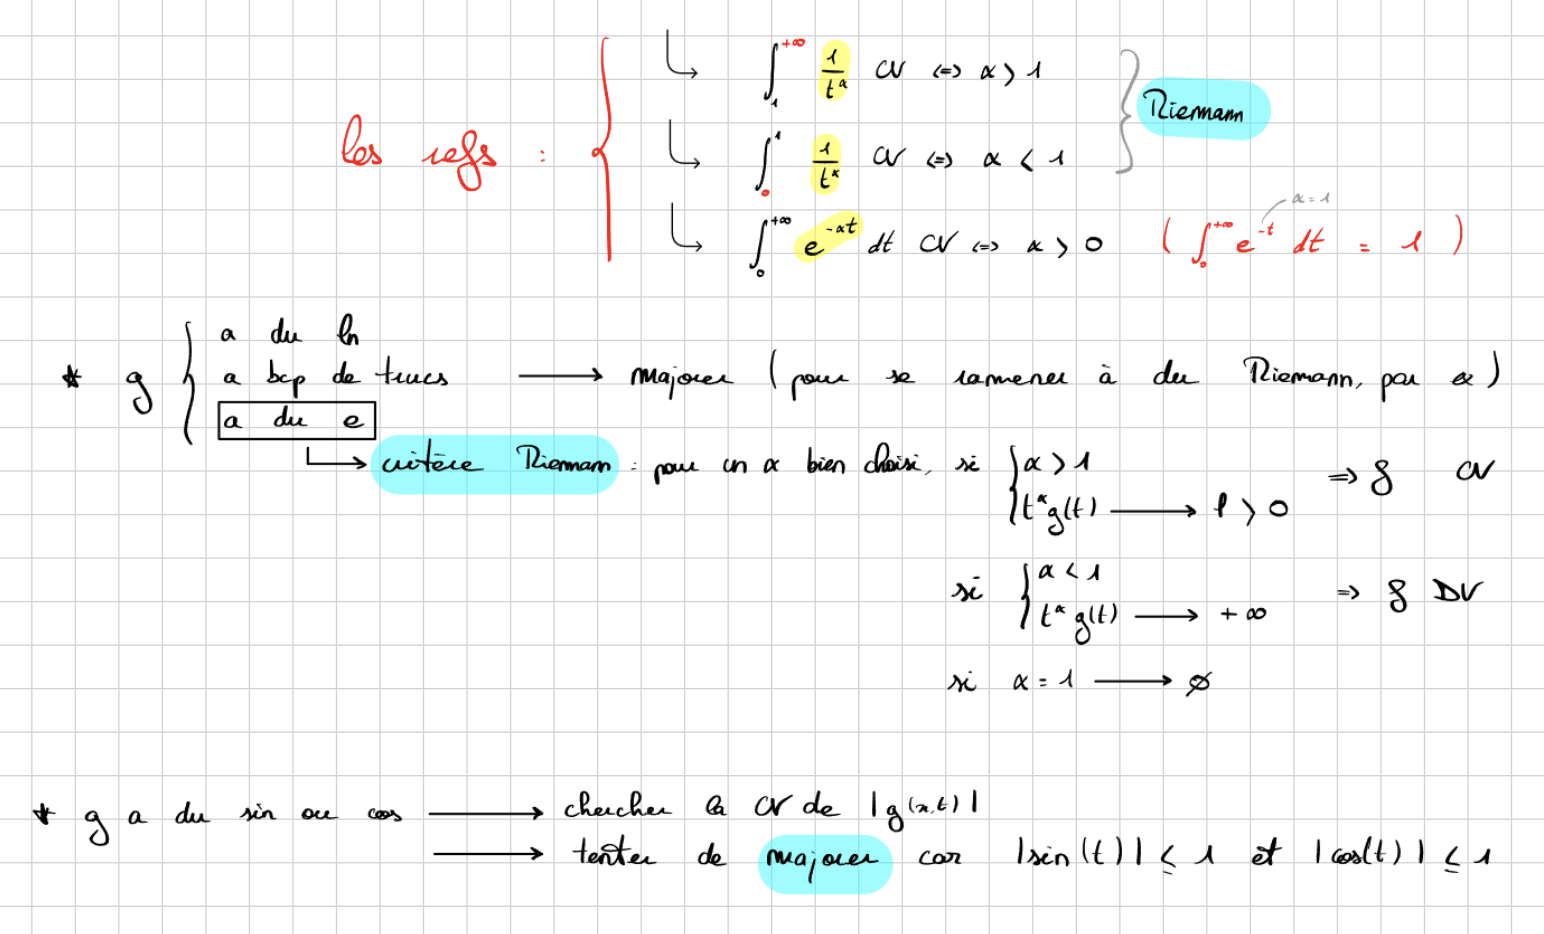 ↳ ∫₁^{+∞} 1/t^α CV <=> α > 1
les refs : ↳ ∫₀^1 1/t^α CV <=> α < 1 } Riemann
↳ ∫₀^{+∞} e^{-αt} dt CV <=> α > 0 ( ∫₀^{+∞} e^{-t} dt = 1 ) α = 1
a du ln
* g { a bcp de trucs → majorer (pour se ramener à du Riemann, par ex)
a du e
↳ critère Riemann : pour un α bien choisi, si { α > 1 => ∫ CV
t^α g(t) → l > 0
si { α < 1 => ∫ DV
t^α g(t) → +∞
si α = 1 → ∅
* g a du sin ou cos → chercher la CV de |g(x,t)|
→ tenter de majorer car |sin(t)| ≤ 1 et |cos(t)| ≤ 1